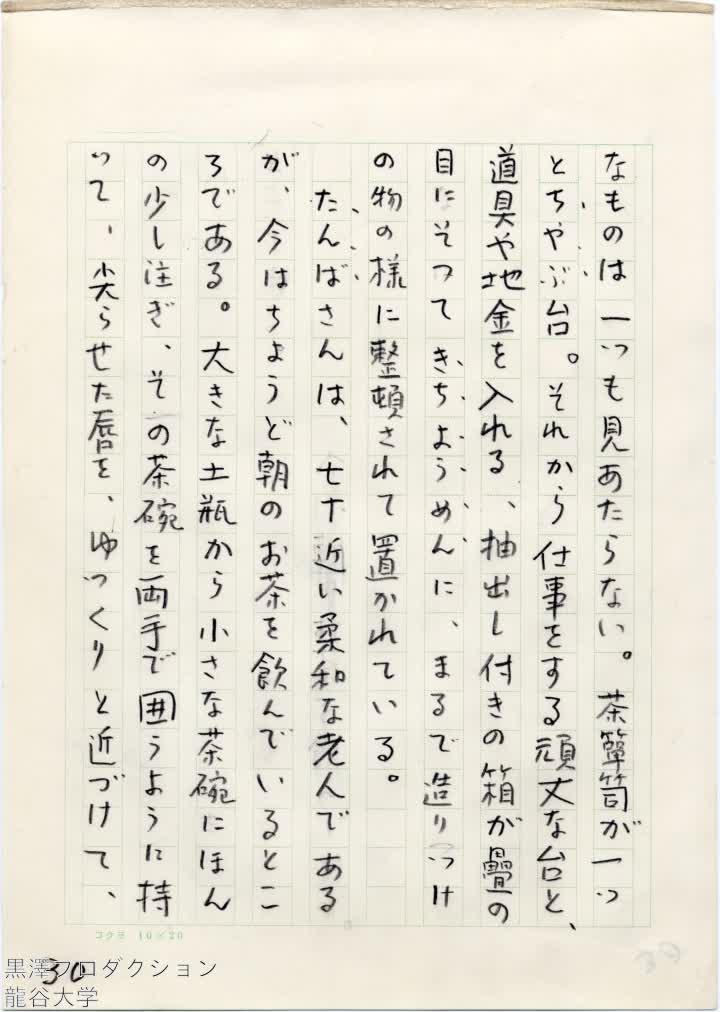 なものは一つも見あたらない。茶箪笥が一つ
とちやぶ台。それから仕事をする頑丈な台と、
道具や地金を入れる、抽出し付きの箱が疊の
目にそつてきちようめんに、まるで造りつけ
の物の様に整頓されて置かれている。
たんばさんは、七十近い柔和な老人である
が、今はちようど朝のお茶を飲んでいるとこ
ろである。大きな土瓶から小さな茶碗にほん
の少し注ぎ、その茶碗を両手で囲うように持
つて、尖らせた唇を、ゆつくりと近づけて、
コクヨ 10×20
30
黒澤プロダクション
龍谷大学